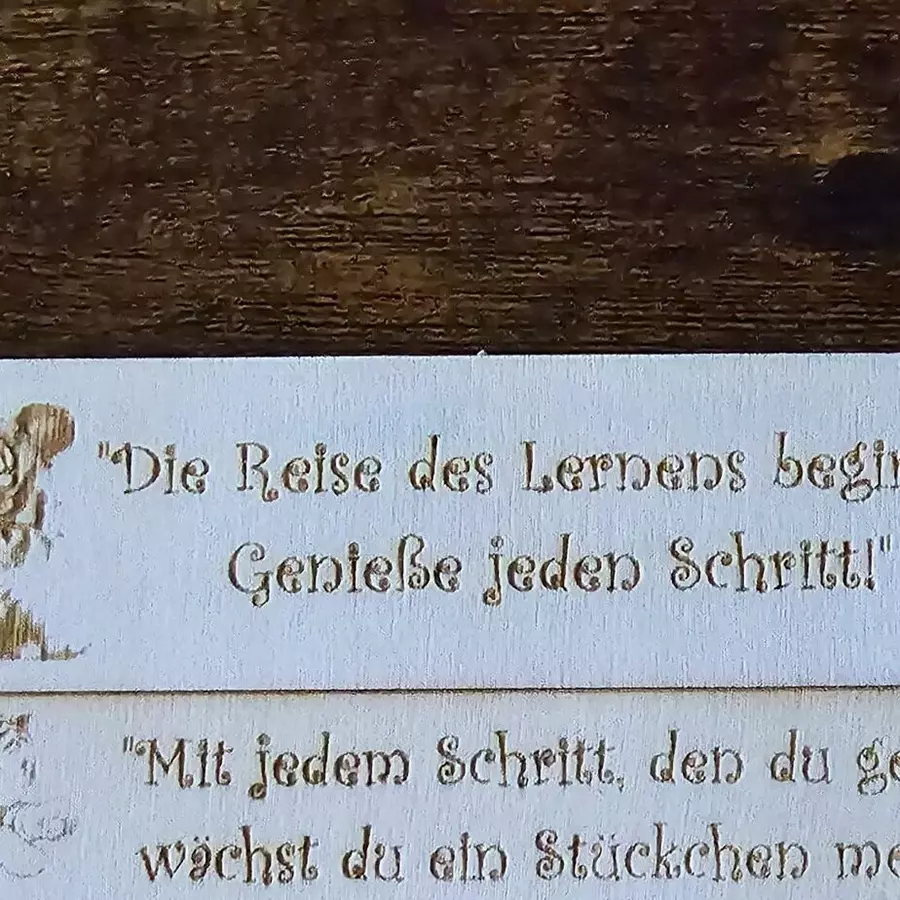 "Die Reise des Lernens
Genieße jeden Schritt!"
"Mit jedem Schritt, den du
wächst du ein Stückchen